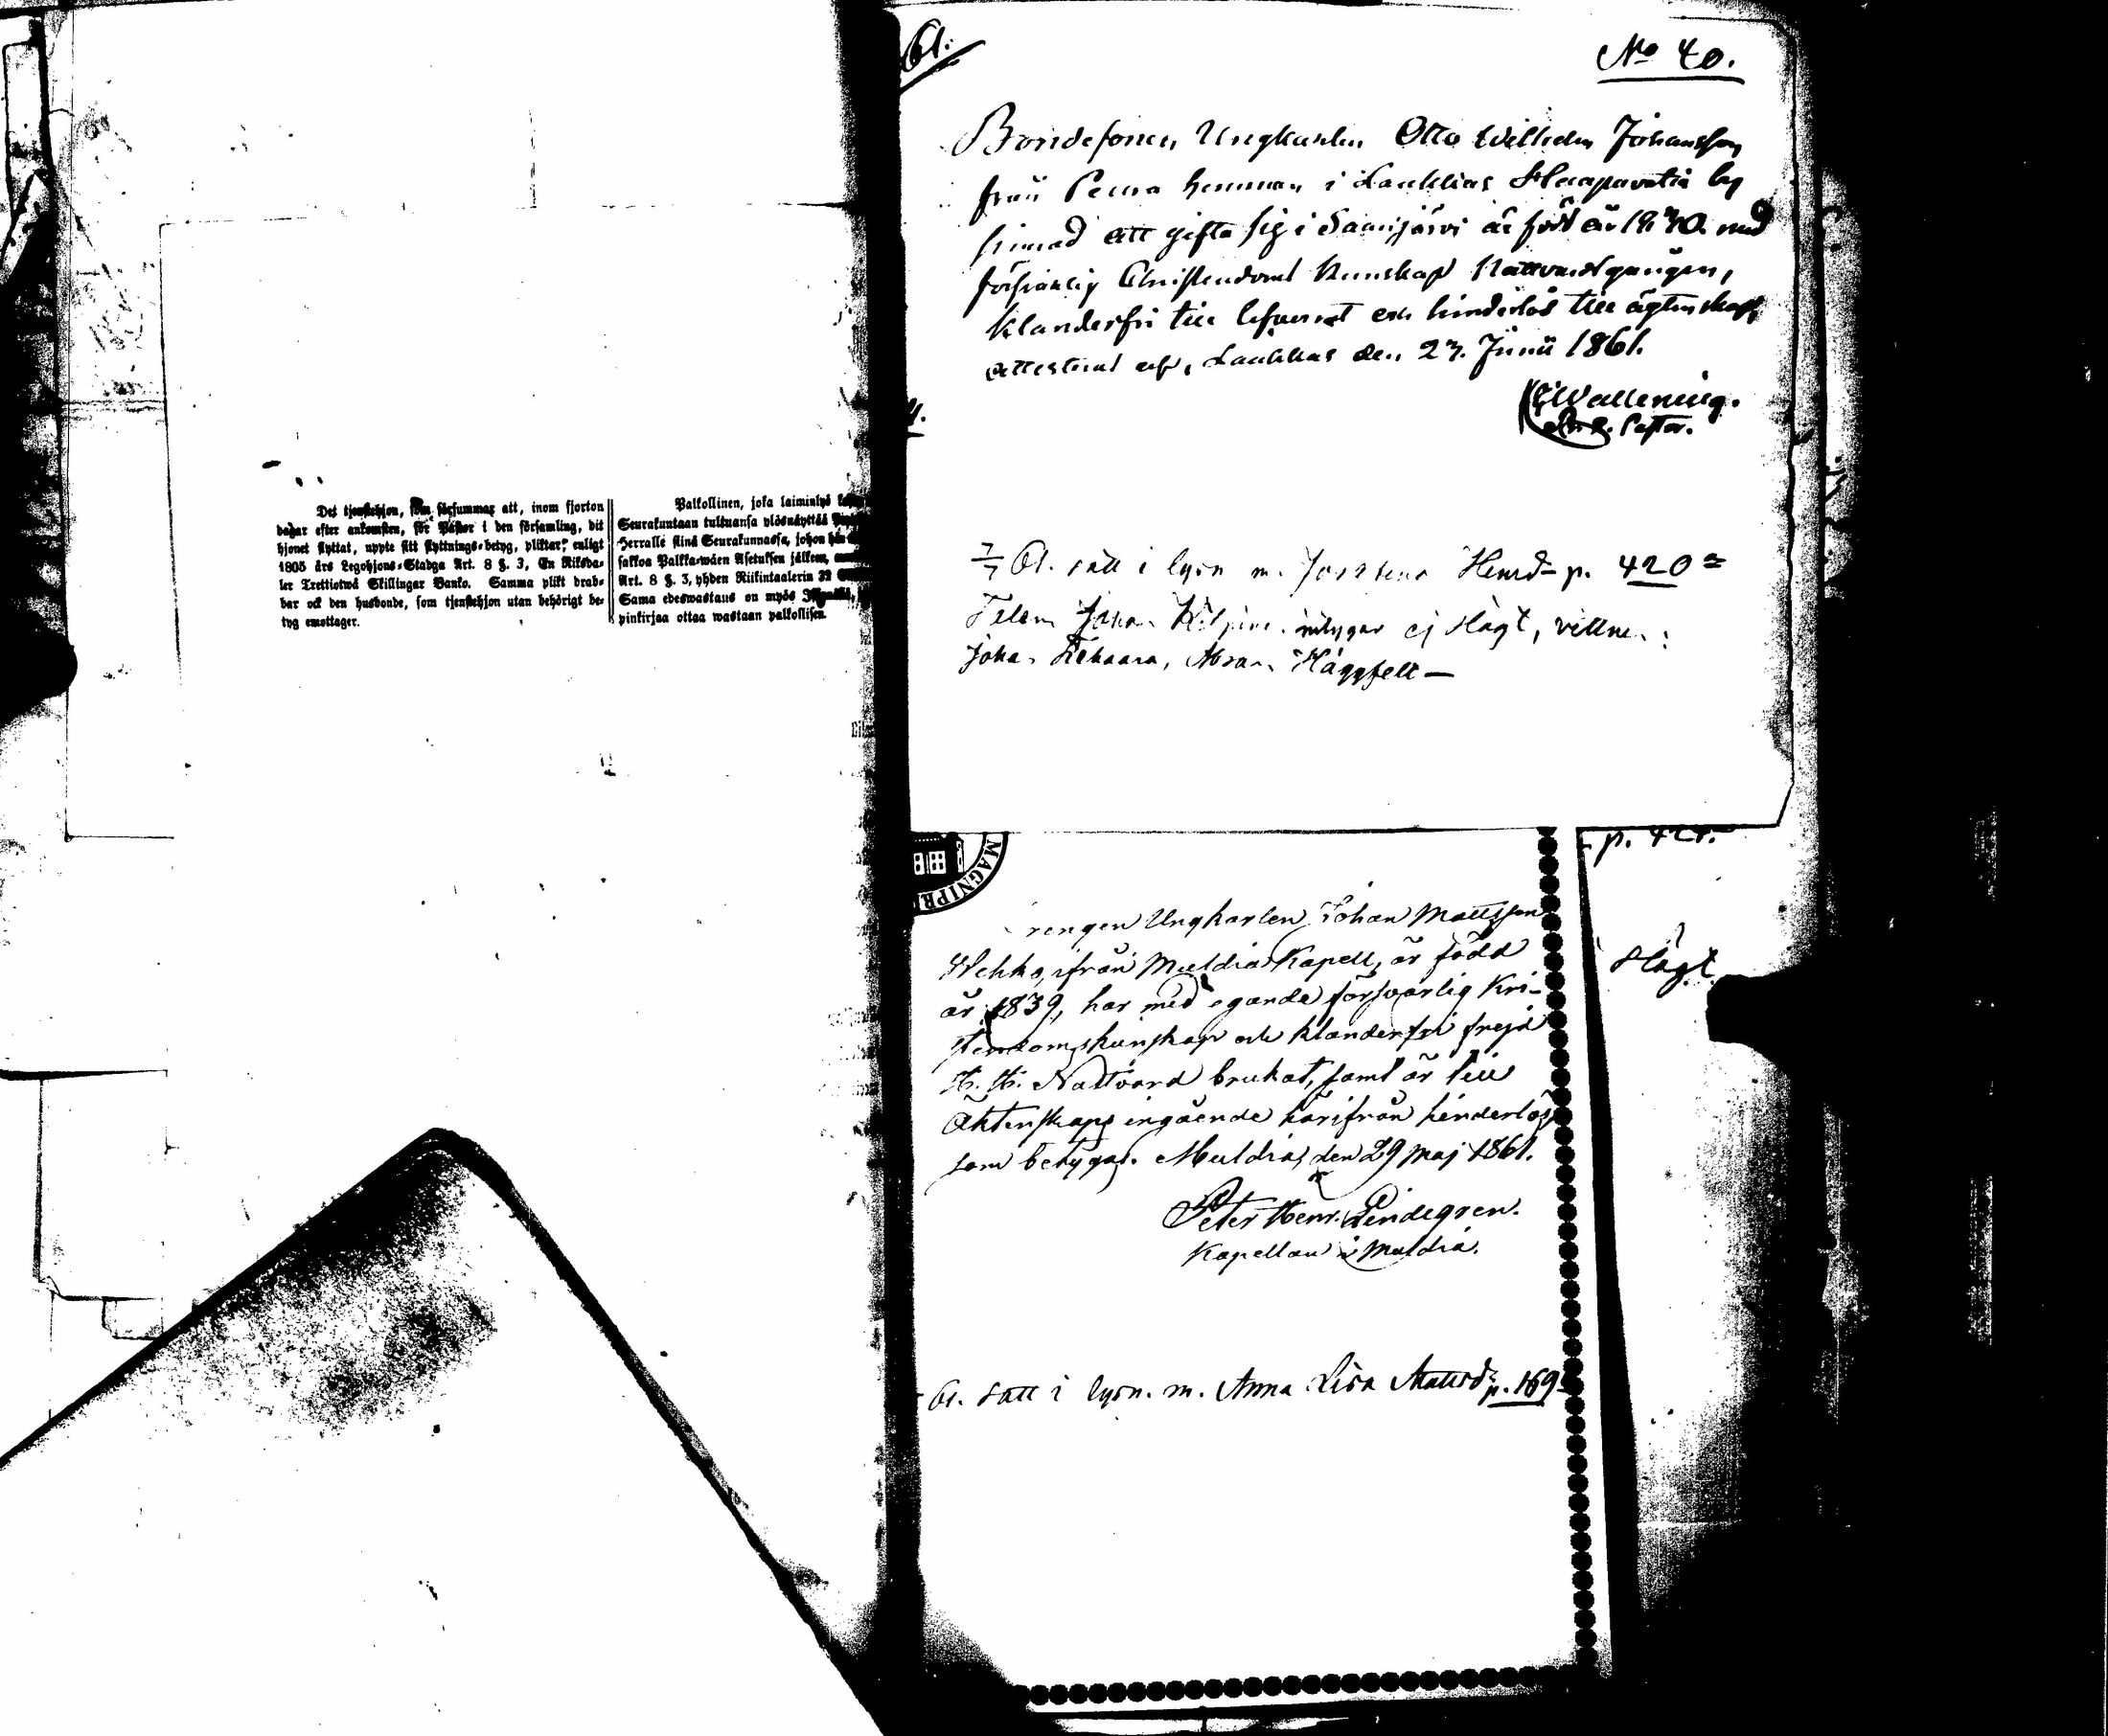 Det tjenstehjon, som försummar att, inom fjorton
dagar efter ankomsten, för Pastor i den församling, dit
hjonet flyttat, uppte sitt flyttnings-betyg, pliktar, enligt
1805 års Legohjons-Stadga Art. 8 §. 3, En Riksda-
ler Trettiotwå Skillingar Banko. Samma plikt drab-
bar ock den husbonde, som tjenstehjon utan behörigt be-
tyg emottager.
Palkollinen, joka laiminlyö
Seurakuntaan tultuansa ylösnäyttää
Herralle siinä Seurakunnassa, johon hän
sakkoa Palkka-wäen Asetuksen jälkeen,
Art. 8 §. 3, yhden Riikintaalerin 32
Sama edeswastaus on myös
pinkirjaa ottaa wastaan palkollisen.
61.
No 40.
Bondesonen, Ungkarlen Otto Wilhelm Johansson
från Peura hemman i Laukkas Haapavatia by
sinnad att gifta sig i Saarijärvi är född år 18 0. med
försvarlig Christendoms kunskap Nattvardgången,
klanderfri till lefvernet och hinderlös till ägtenskap,
attesteras af, Laukkas den 27. Junii 1861.
Wallening.
Pastor.
7/7 61. satt i lysn m. Henrd. p. 420
Johan intygar ej slägt, vittnen:
Johan Abra. Häggfelt —
p. 421.
Slägt
MAGNIPRI
rengen Ungkarlen Johan Mattsson
ifrån Muldia Kapell, är född
år 1839, har med egande försvarlig Kri-
stendomskunskap och klanderfri frejd
H. H. Nattvard brukat, samt är till
Äktenskaps ingående härifrån hinderlös,
som betygas. Muldia, den 29 Maj 1861.
Peter Henr. Lindegren.
Kapellan i Muldia.
61. satt i lysn. m. Anna Lisa Mattsd. p. 169